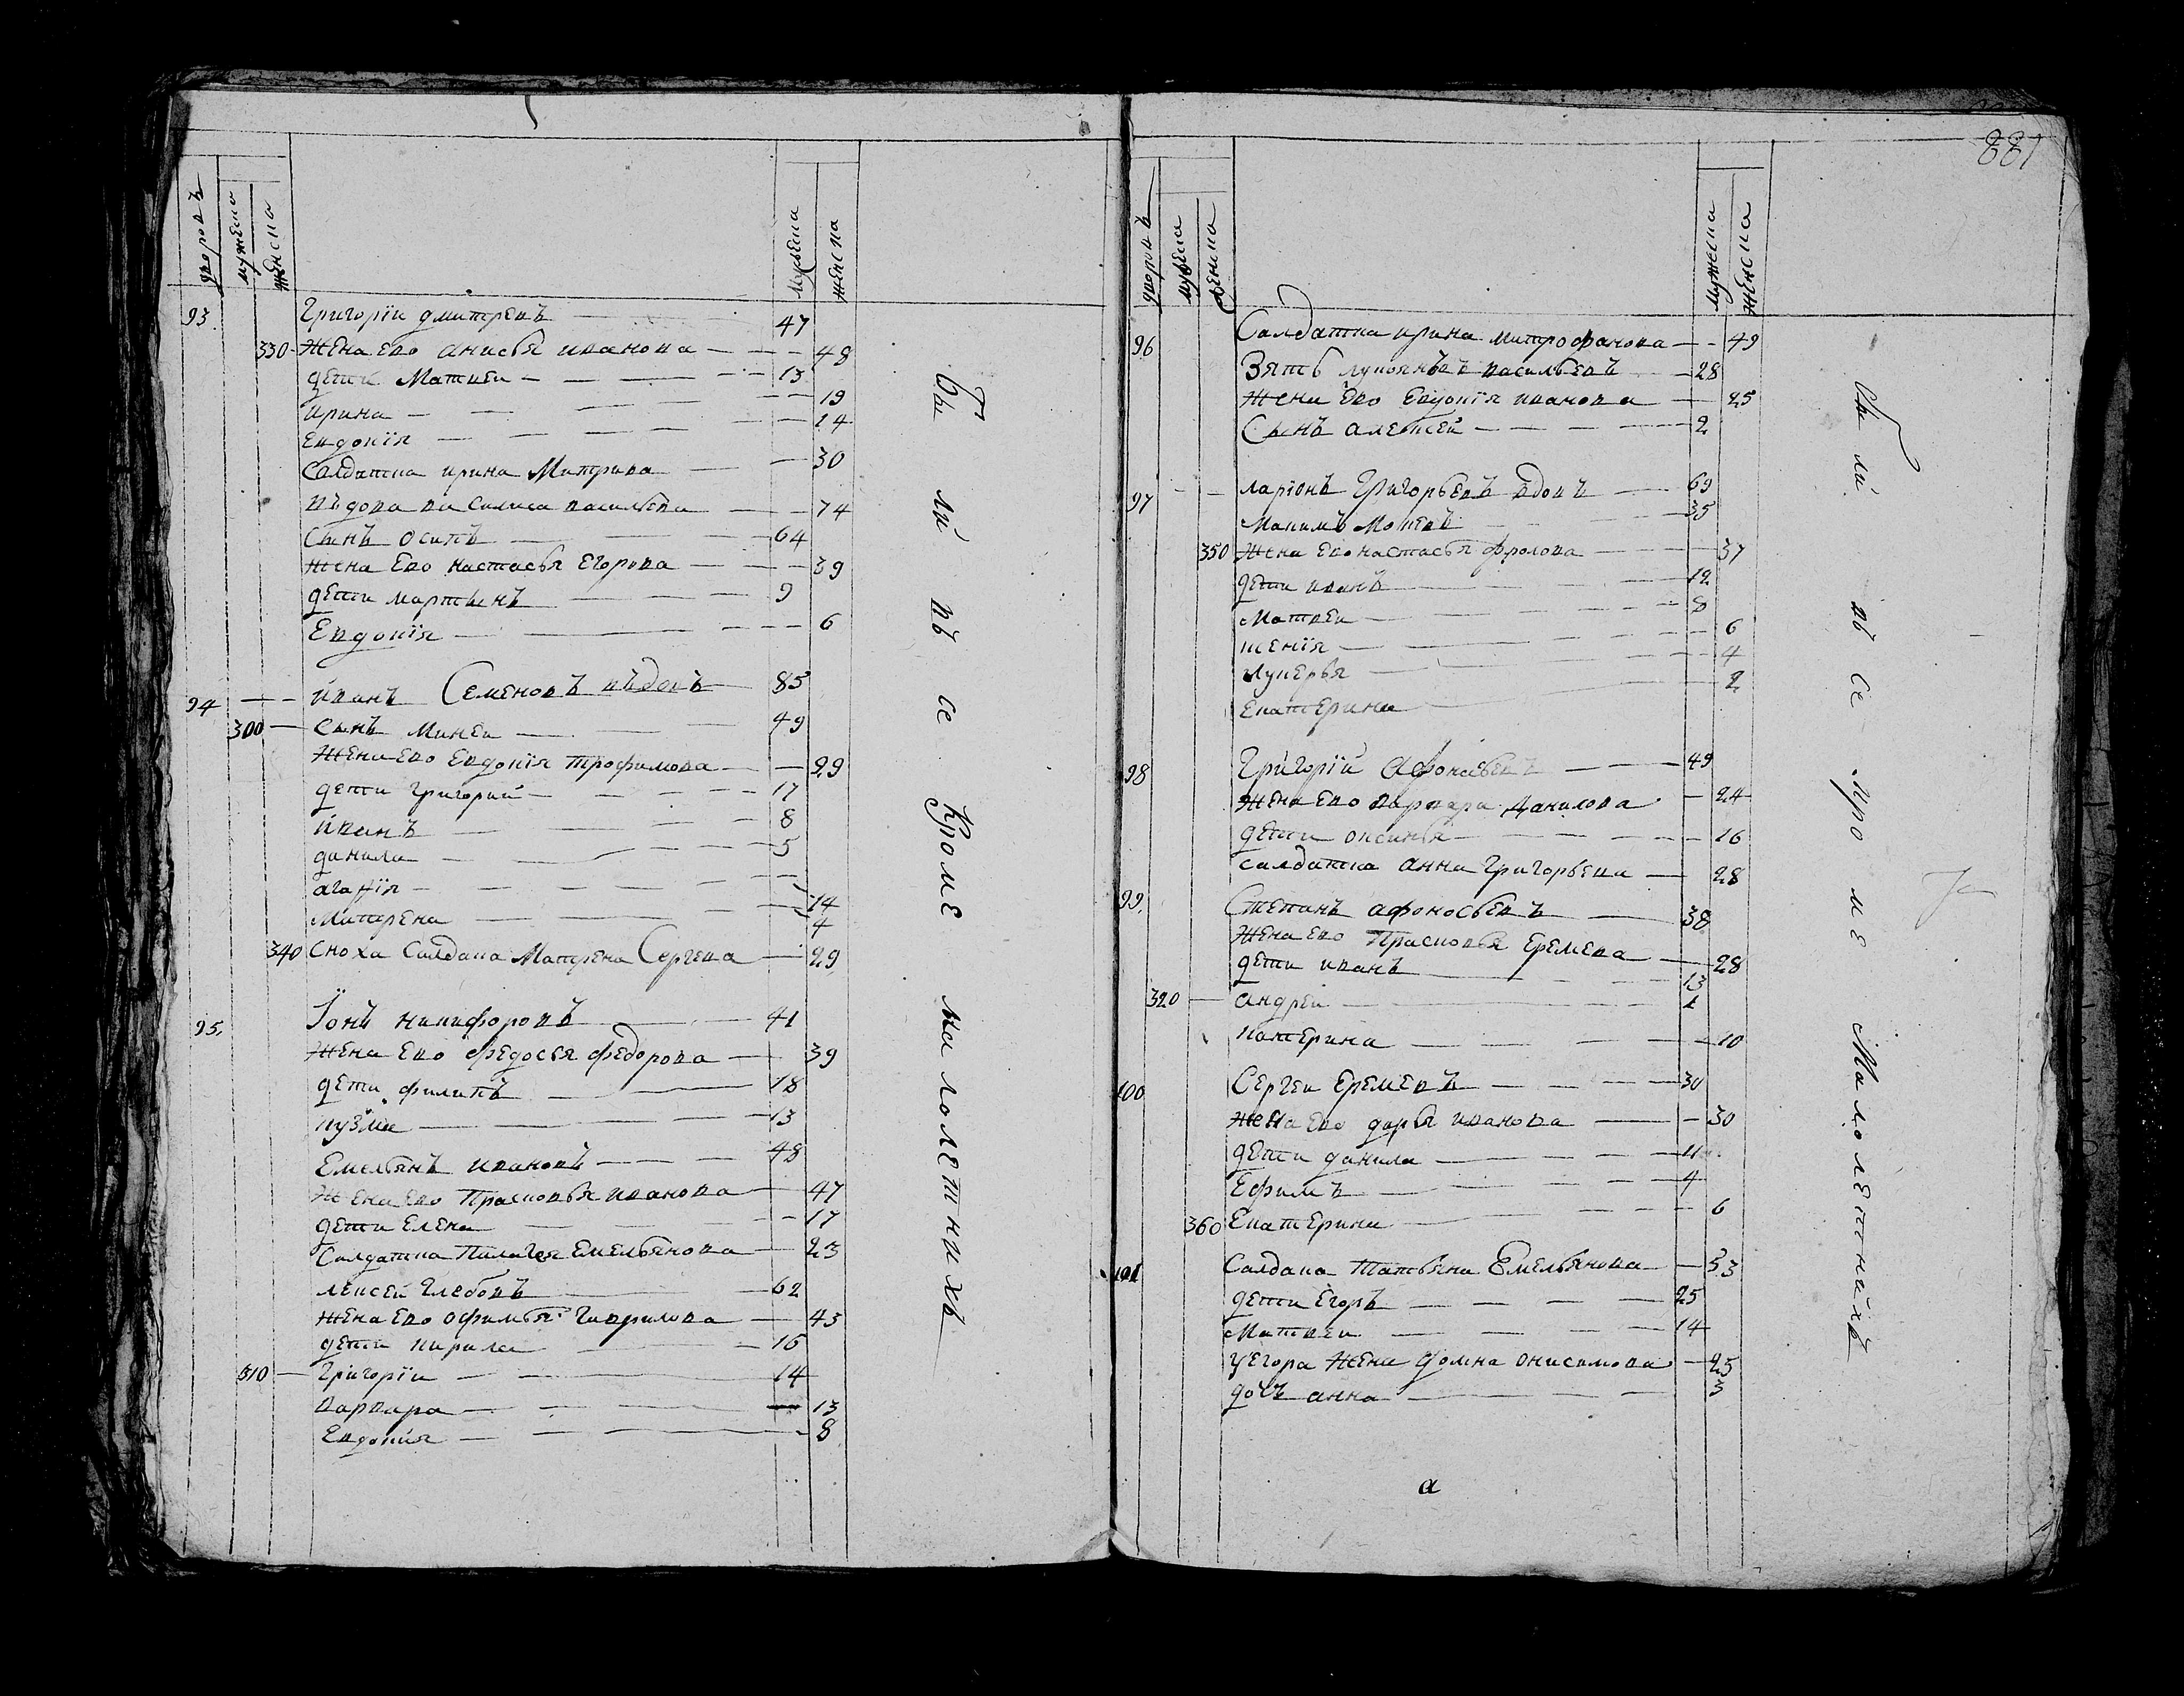 дворовъ мужеска женска мужеска женска
93 Григории дмитревъ 47
330 Жена ево анисья иванова 48
дети Матвеи 13
ирина 19
Евдокїя 14
Салдатка ирина Митрива 30
въдова василиса василева 74
Сынъ осипъ 64
жена Ево настасья Егорова 39
дети мартынъ 9
Евдокїя 6
94 иванъ Семеновъ въдовъ 85
300 сынъ Минеи 49
Жена ево Евдокїя трофимова 29
дети Григорий 17
иванъ 8
данила 5
агафїя 14
Матрена 4
340 сноха Салдака Матрена Сергева 29
95. Їонъ никифоровъ 41
Жена Ево федосья федорова 39
дети филипъ 18
кузма 13
Емельянъ ивановъ 48
Жена ево Прасковья иванова 47
дети Елена 17
Салдатка Пилагея Емельянова 23
лексей Глебовъ 62
жена ево офимья Гаврилова 43
дети кирила 16
310 Григорїи 14
варвара 13
Евдокия 8
Были въ се Кроме малолетнихъ
881
дворовъ мужеска женска мужеска женска
96 Салдатка ирина митрофанова 49
Зять лукьянъ васильевъ 28
Жена Ево Евдокїя иванова 25
Сынъ алексей 2
97 ларїонъ Григорьевъ вдовъ 69
Макимъ Мокевъ 35
350 Жена ево настасья фролова 37
дети иванъ 12
Матвеи 8
ксенїя 6
лукерья 4
Екатерина 2
98 Григорїй Афонасьевъ 49
Жена Ево варвара Данилова 24
дети оксинья 16
салдатка анна Григорьева 28
99. Степанъ афоносьевъ 38
Жена ево Прасковья Еремева 28
дети иванъ 13
320 андреи 1
катерина 10
100 Сергеи Еремевъ 30
Жена Ево дарья иванова 30
дети данила 11
Ефимъ 4
360 Екатерина 6
101 Салдака татьяна Емельянова 53
дети Егоръ 25
Матвеи 14
уегора жена домна онисимова 25
дочь анна 3
а
Были въ се кроме Малолетнихъ